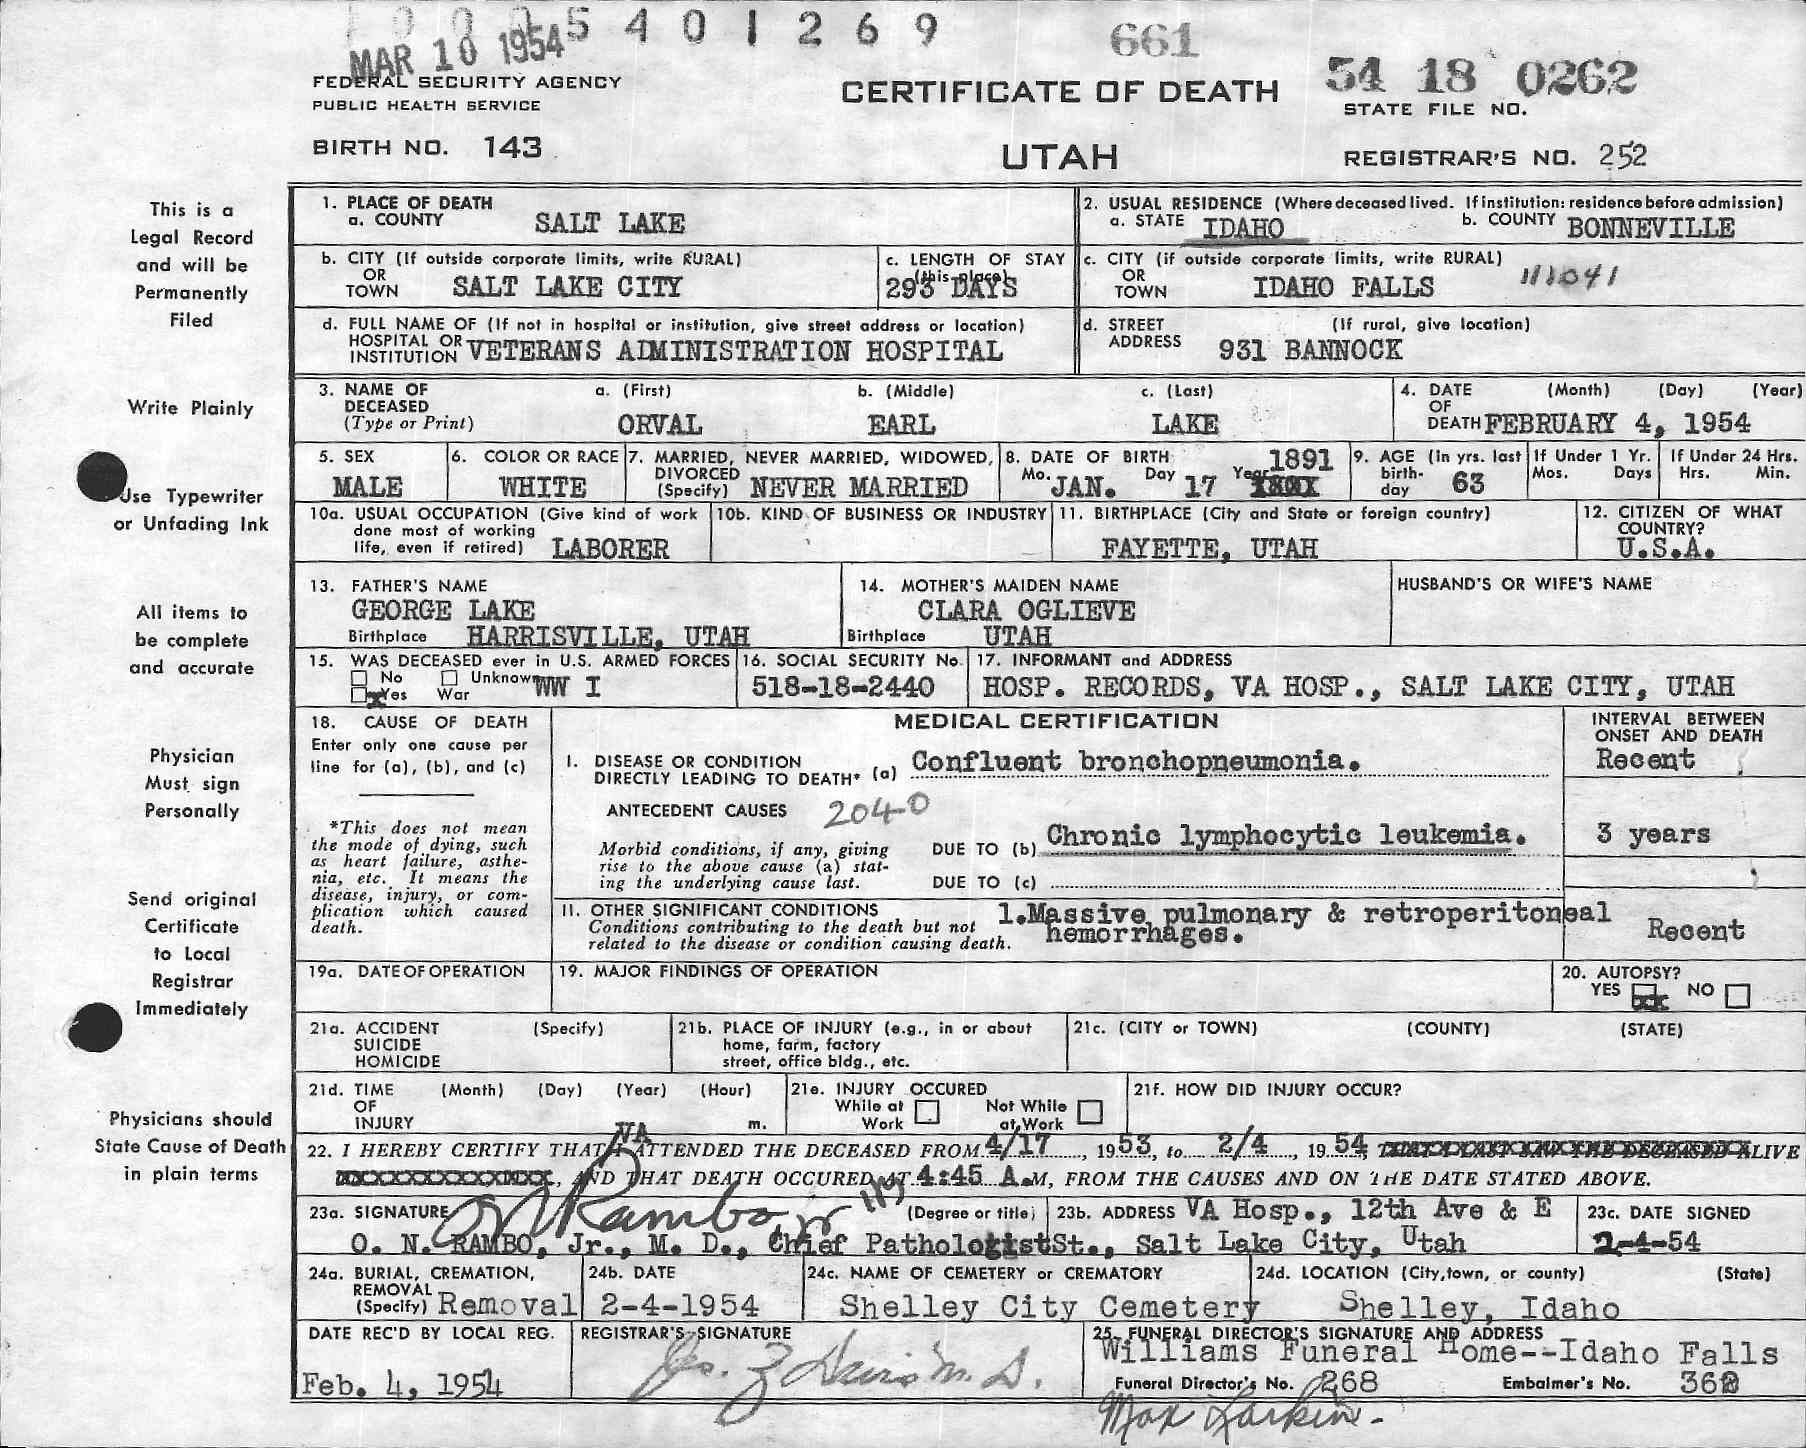 1 0 0 0 5 4 0 1 2 6 9
MAR 10 1954
661
FEDERAL SECURITY AGENCY
PUBLIC HEALTH SERVICE
CERTIFICATE OF DEATH
54 18 0262
STATE FILE NO.
BIRTH NO. 143
UTAH
REGISTRAR'S NO. 252
This is a
Legal Record
and will be
Permanently
Filed
Write Plainly
Use Typewriter
or Unfading Ink
All items to
be complete
and accurate
Physician
Must sign
Personally
Send original
Certificate
to Local
Registrar
Immediately
Physicians should
State Cause of Death
in plain terms
1. PLACE OF DEATH
a. COUNTY SALT LAKE
2. USUAL RESIDENCE (Where deceased lived. If institution: residence before admission)
a. STATE IDAHO b. COUNTY BONNEVILLE
b. CITY (If outside corporate limits, write RURAL)
OR
TOWN SALT LAKE CITY
c. LENGTH OF STAY
(this place)
293 DAYS
c. CITY (if outside corporate limits, write RURAL)
OR
TOWN IDAHO FALLS
d. FULL NAME OF (If not in hospital or institution, give street address or location)
HOSPITAL OR
INSTITUTION VETERANS ADMINISTRATION HOSPITAL
d. STREET (If rural, give location)
ADDRESS 931 BANNOCK
3. NAME OF a. (First) b. (Middle) c. (Last)
DECEASED
(Type or Print) ORVAL EARL LAKE
4. DATE (Month) (Day) (Year)
OF
DEATH FEBRUARY 4, 1954
5. SEX
MALE
6. COLOR OR RACE
WHITE
7. MARRIED, NEVER MARRIED, WIDOWED,
DIVORCED
(Specify) NEVER MARRIED
8. DATE OF BIRTH 1891
Mo. JAN. Day 17 Year
9. AGE (In yrs. last
birth-
day 63
If Under 1 Yr.
Mos. Days
If Under 24 Hrs.
Hrs. Min.
10a. USUAL OCCUPATION (Give kind of work
done most of working
life, even if retired) LABORER
10b. KIND OF BUSINESS OR INDUSTRY
11. BIRTHPLACE (City and State or foreign country)
FAYETTE, UTAH
12. CITIZEN OF WHAT
COUNTRY?
U.S.A.
13. FATHER'S NAME
GEORGE LAKE
Birthplace HARRISVILLE, UTAH
14. MOTHER'S MAIDEN NAME
CLARA OGLIEVE
Birthplace UTAH
HUSBAND'S OR WIFE'S NAME
15. WAS DECEASED ever in U.S. ARMED FORCES
No Unknown WW I
x Yes War
16. SOCIAL SECURITY No.
518-18-2440
17. INFORMANT and ADDRESS
HOSP. RECORDS, VA HOSP., SALT LAKE CITY, UTAH
18. CAUSE OF DEATH
Enter only one cause per
line for (a), (b), and (c)
*This does not mean
the mode of dying, such
as heart failure, asthe-
nia, etc. It means the
disease, injury, or com-
plication which caused
death.
MEDICAL CERTIFICATION
INTERVAL BETWEEN
ONSET AND DEATH
I. DISEASE OR CONDITION
DIRECTLY LEADING TO DEATH* (a) Confluent bronchopneumonia. Recent
ANTECEDENT CAUSES 2040
Morbid conditions, if any, giving
rise to the above cause (a) stat-
ing the underlying cause last.
DUE TO (b) Chronic lymphocytic leukemia. 3 years
DUE TO (c)
II. OTHER SIGNIFICANT CONDITIONS
Conditions contributing to the death but not
related to the disease or condition causing death.
1.Massive pulmonary & retroperitoneal
hemorrhages. Recent
19a. DATE OF OPERATION
19. MAJOR FINDINGS OF OPERATION
20. AUTOPSY?
YES xx NO
21a. ACCIDENT (Specify)
SUICIDE
HOMICIDE
21b. PLACE OF INJURY (e.g., in or about
home, farm, factory
street, office bldg., etc.
21c. (CITY or TOWN) (COUNTY) (STATE)
21d. TIME (Month) (Day) (Year) (Hour)
OF
INJURY m.
21e. INJURY OCCURED
While at Not While
Work at Work
21f. HOW DID INJURY OCCUR?
VA
22. I HEREBY CERTIFY THAT ATTENDED THE DECEASED FROM 4/17, 1953, to 2/4, 1954, ALIVE
, AND THAT DEATH OCCURED AT 4:45 A.M, FROM THE CAUSES AND ON THE DATE STATED ABOVE.
23a. SIGNATURE Rambo, Jr (Degree or title)
O. N. RAMBO, Jr., M. D., Chief Pathologist
23b. ADDRESS VA Hosp., 12th Ave & E
St., Salt Lake City, Utah
23c. DATE SIGNED
2-4-54
24a. BURIAL, CREMATION,
REMOVAL
(Specify) Removal
24b. DATE
2-4-1954
24c. NAME OF CEMETERY or CREMATORY
Shelley City Cemetery
24d. LOCATION (City, town, or county) (State)
Shelley, Idaho
DATE REC'D BY LOCAL REG.
Feb. 4, 1954
REGISTRAR'S SIGNATURE
25. FUNERAL DIRECTOR'S SIGNATURE AND ADDRESS
Williams Funeral Home--Idaho Falls
Funeral Director's No. 268 Embalmer's No.
Max Larkin.